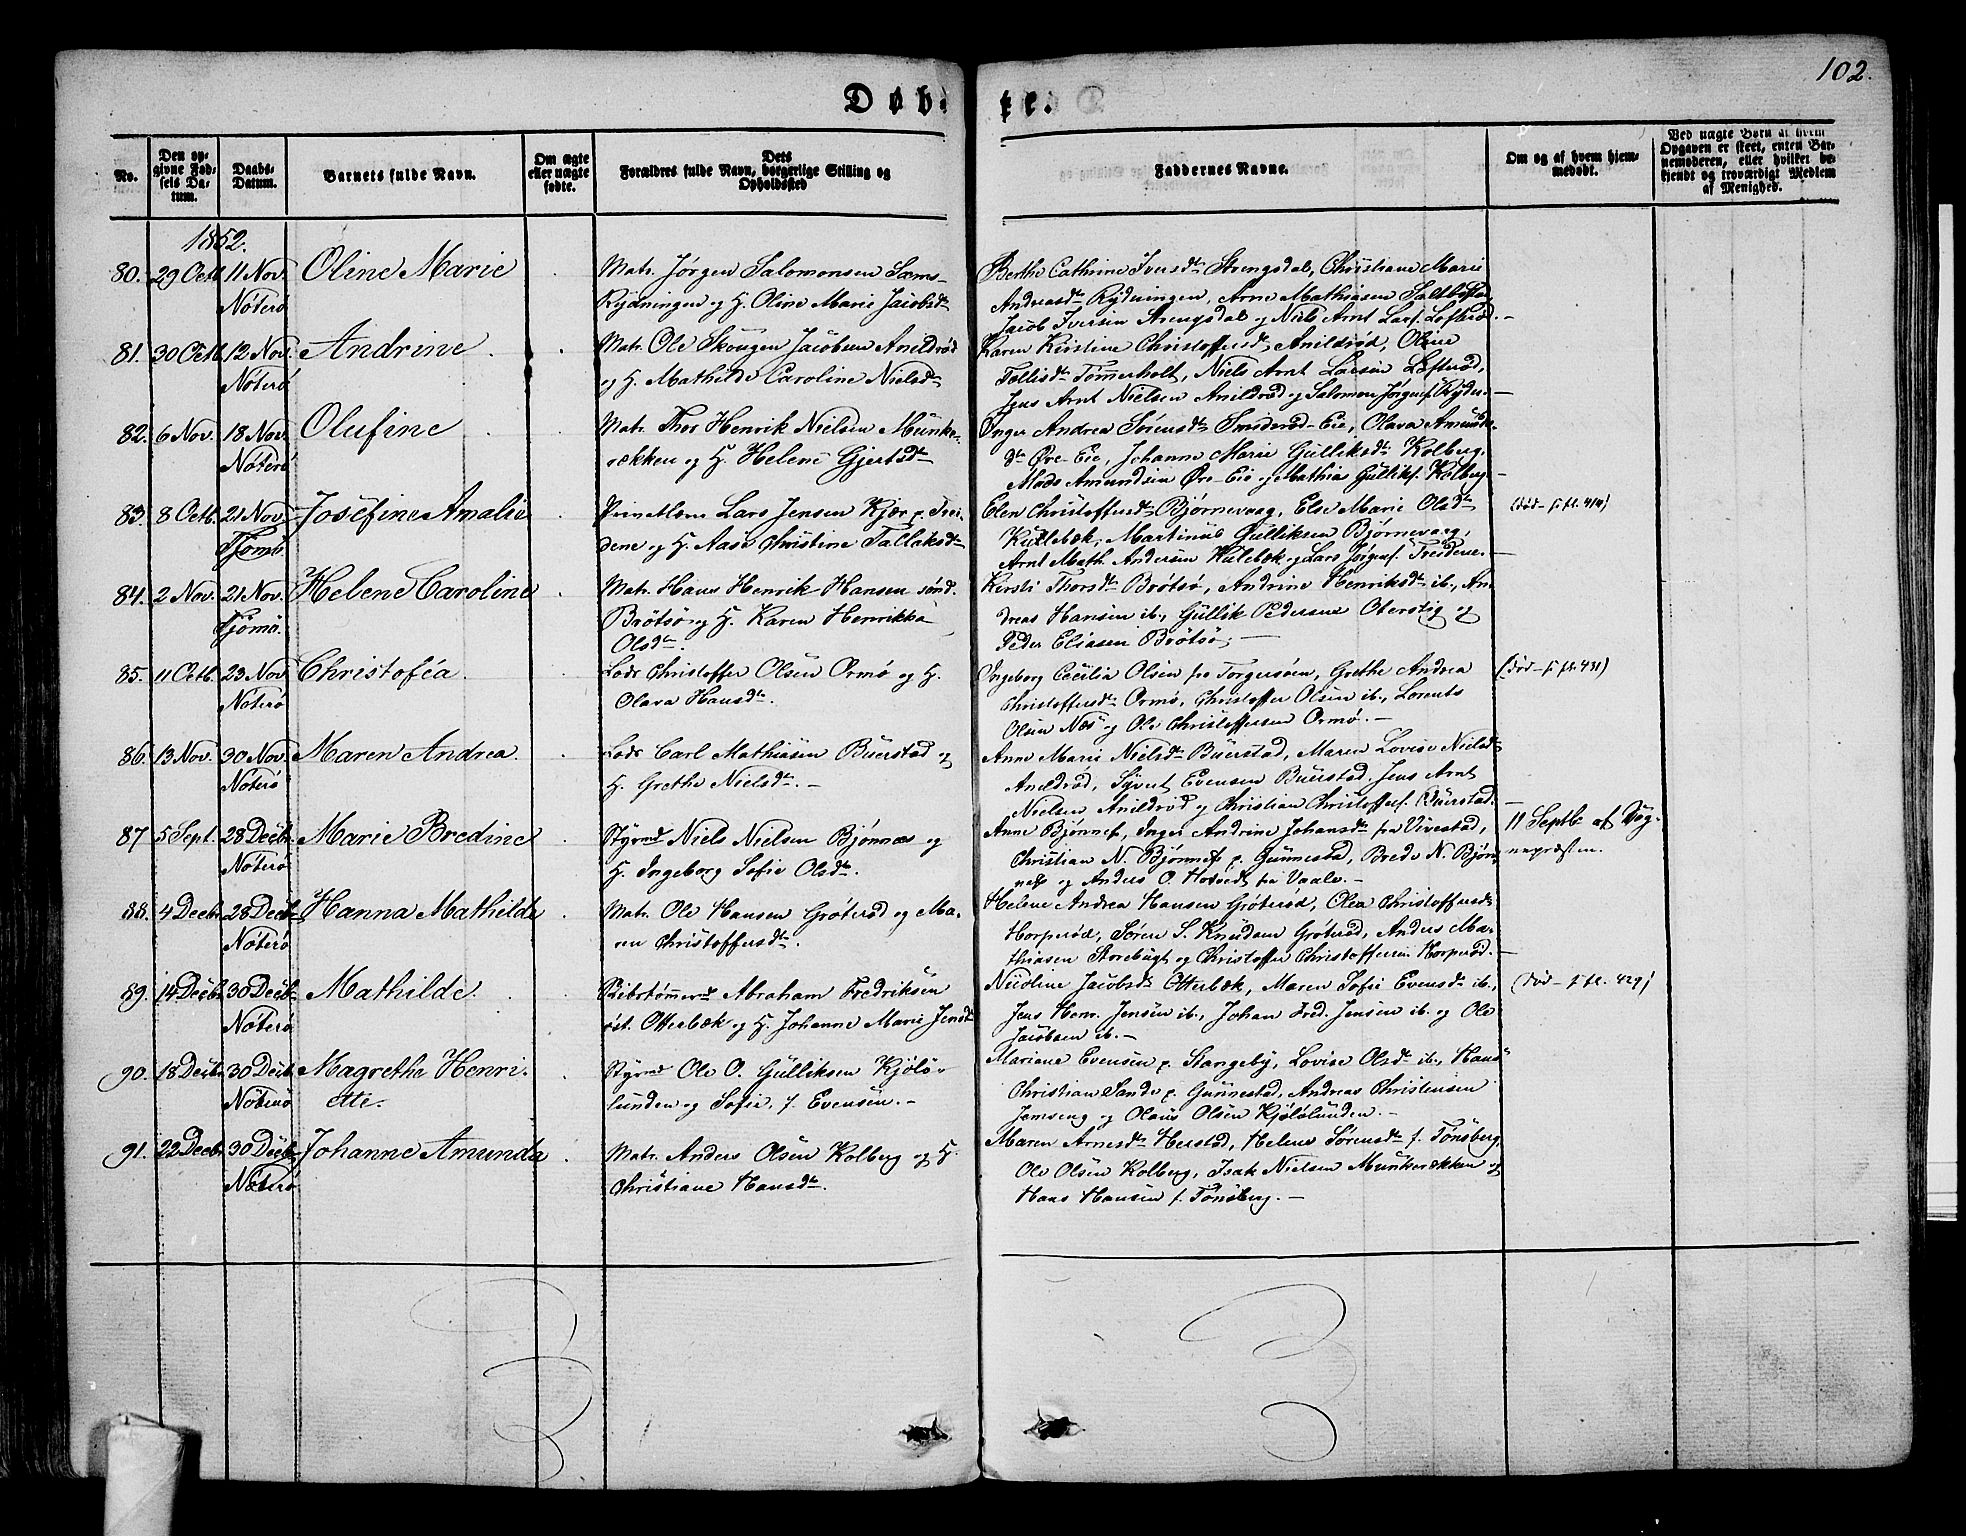 Døb-
te.
102.
No.
Den op-
givne Fød-
sels Da-
tum.
Daabs-
Datum.
Barnets fulde Navn.
Om ægte
eller uægte
fødte.
Dets
Forældres fulde Navn, borgerlige Stilling og
Opholdssted
Faddernes Navne.
Om og af hvem hjem-
medøbt.
Ved uægte Børn af hvem
Opgaven er skeet, enten Bar-
nemoderen, eller hvilket be-
kjendt og troværdigt Medlem
af Menighed.
1852.
80. 29 Octb 11 Nov. Oline Marie
Nøterø
Matr. Jørgen Salomonsen Sams-
Rydningen og H. Oline Marie Jacobsdtr
Berthe Cathrine Iversdtr Strengsdal, Christiane Marie
Andreasdtr Rydningen, Arne Mathiasen Saltbostad,
Jacob Iversen Strengsdal og Niels Arnt Lars. Lofterød.
81. 30 Octb 12 Nov. Andrine
Nøterø
Matr. Ole Skougen Jacobsen Anildrød
og H. Mathilde Caroline Nielsdtr
Karen Kirstine Christoffersdtr Anildrød, Oline
Tollisdtr Tømmerholt, Niels Arnt Larsen Lofterød,
Jens Arnt Nielsen Anildrød og Salomon Jørgens. Rydn.
82. 6 Nov. 18 Nov. Olufine
Nøterø
Matr. Thor Henrik Nielsen Munke-
rækken og H. Helene Gjertsdtr
Inger Andrea Sørensdtr Smiderød-Eie, Olava Amunds-
dtr Øre-Eie, Johanne Marie Gulliksdtr Kolberg,
Mads Amundsen Øre-Eie og Mathias Gulliks. Kolberg
83. 8 Octb. 21 Nov. Josefine Amalie
Tjømø
Lars Jensen Kjær p. Trei-
dene og H. Aase Christine Tallaksdtr
Elen Christoffersdtr Bjørnevaag, Else Marie Olsdtr
Kullebæk, Martinus Gulliksen Bjørnevaag,
Arnt Math. Andersen Kulebæk og Lars Jørgens. Treidene.
(død - f. fl. 414)
84. 2 Nov. 21 Nov. Helene Caroline
Tjømø.
Matr. Hans Henrik Hansen sønd.
Brøtsø og H. Karen Henrikka
Olsdtr.
Kirsti Thorsdtr Brøtsø, Andrine Henriksdtr ib., An-
dreas Hansen ib., Gullik Pedersen Oterstig og
Peder Eliasen Brøtsø.
85. 11 Octb. 23 Nov Christoféa.
Nøterø
Lods Christoffer Olsen Ormø og H.
Olava Hansdtr.
Ingeborg Cecilia Olsen fra Torgersøen, Grethe Andrea
Christoffersdtr Ormø, Christoffer Olsen ib., Lorents
Olsen Næs og Ole Christoffersen Ormø.
(død - f. fl. 431)
86. 13 Nov. 30 Nov. Maren Andrea.
Nøterø
Lods Carl Mathiasen Buerstad og
H. Grethe Nielsdtr.
Anne Marie Nielsdtr Buerstad, Maren Lovise Nielsdtr
Anildrød, Syvert Evensen Buerstad, Jens Arnt
Nielsen Anildrød og Christian Christoffers. Buerstad.
87 5 Sept. 28 Decbr. Marie Bredine
Nøterø
Styrmd Niels Nielsen Bjønnæs og
H. Ingeborg Sofie Olsdtr.
Anne Bjønnes, Inger Andrine Johansdtr fra Vivestad,
Christian N. Bjønnes p. Gunnestad, Brede N. Bjøn-
nes og Anders O. Hotvedt fra Vaale.
11 Septb af Sog-
nepræsten.
88. 4 Decbr. 28 Decbr Hanna Mathilde
Nøterø
Matr. Ole Hansen Grøterød og Ma-
ren Christoffersdtr.
Helene Andrea Hansen Grøterød, Olea Christoffersdtr
Horperød, Søren S. Knudsen Grøterød, Anders Ma-
thiasen Storebugt og Christoffer Christoffersen Horperød.
89. 14 Decbr 30 Decbr Mathilde.
Nøterø
Skibstømmermd Abraham Fredriksen
øst. Otterbæk og H. Johanne Marie Jensdtr
Nicoline Jacobsdtr Otterbæk, Maren Sofie Evensdtr ib.,
Jens Henr. Jensen ib., Johan Fred. Jensen ib. og Ole
Jacobsen ib.
(død - f. fl. 429)
90. 18 Decbr. 30 Decbr Magrethe Henri-
Nøterø ette.
Styrmd Ole O. Gulliksen Kjøløe-
lunden og Sofie f. Evensen.
Mariane Evensen p. Stangeby, Lovise Olsdtr ib., Hans
Christian Sande p. Gunnestad, Andreas Christensen
Jemseng og Olaus Olsen Kjøløelunden.
91. 22 Decbr. 30 Decbr Johanne Amunda
Nøterø
Matr. Anders Olsen Kolberg og H.
Christiane Hansdtr.
Maren Arnesdtr Herstad, Helene Sørensdtr f. Tønsberg
Ole Olsen Kolberg, Isak Nielsen Munkerækken og
Hans Hansen f. Tønsberg.